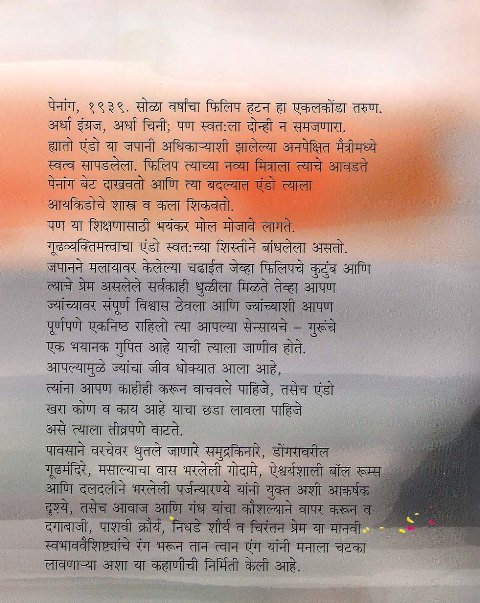 पेनांग, १९३९. सोळा वर्षांचा फिलिप हटन हा एकलकोंडा तरुण.
अर्धा इंग्रज, अर्धा चिनी; पण स्वत:ला दोन्ही न समजणारा.
ह्यातो एंडो या जपानी अधिकाऱ्याशी झालेल्या अनपेक्षित मैत्रीमध्ये
स्वत्व सापडलेला. फिलिप त्याच्या नव्या मित्राला त्याचे आवडते
पेनांग बेट दाखवतो आणि त्या बदल्यात एंडो त्याला
आयकिडोचे शास्त्र व कला शिकवतो.
पण या शिक्षणासाठी भयंकर मोल मोजावे लागते.
गूढव्यक्तिमत्त्वाचा एंडो स्वत:च्या शिस्तीने बांधलेला असतो.
जपानने मलायावर केलेल्या चढाईत जेव्हा फिलिपचे कुटुंब आणि
त्याचे प्रेम असलेले सर्वकाही धुळीला मिळते तेव्हा आपण
ज्यांच्यावर संपूर्ण विश्वास ठेवला आणि ज्यांच्याशी आपण
पूर्णपणे एकनिष्ठ राहिलो त्या आपल्या सेन्सायचे – गुरूंचे
एक भयानक गुपित आहे याची त्याला जाणीव होते.
आपल्यामुळे ज्यांचा जीव धोक्यात आला आहे,
त्यांना आपण काहीही करून वाचवले पाहिजे, तसेच एंडो
खरा कोण व काय आहे याचा छडा लावला पाहिजे
असे त्याला तीव्रपणे वाटते.
पावसाने वरचेवर धुतले जाणारे समुद्रकिनारे, डोंगरावरील
गूढमंदिरे, मसाल्याचा वास भरलेली गोदामे, ऐश्वर्यशाली बॉल रूम्स
आणि दलदलीने भरलेली पर्जन्यारण्ये यांनी युक्त अशी आकर्षक
दृश्ये, तसेच आवाज आणि गंध यांचा कौशल्याने वापर करून व
दगाबाजी, पाशवी क्रौर्य, निधडे शौर्य व चिरंतन प्रेम या मानवी
स्वभाववैशिष्ट्यांचे रंग भरून तान त्वान एंग यांनी मनाला चटका
लावणाऱ्या अशा या कहाणीची निर्मिती केली आहे.